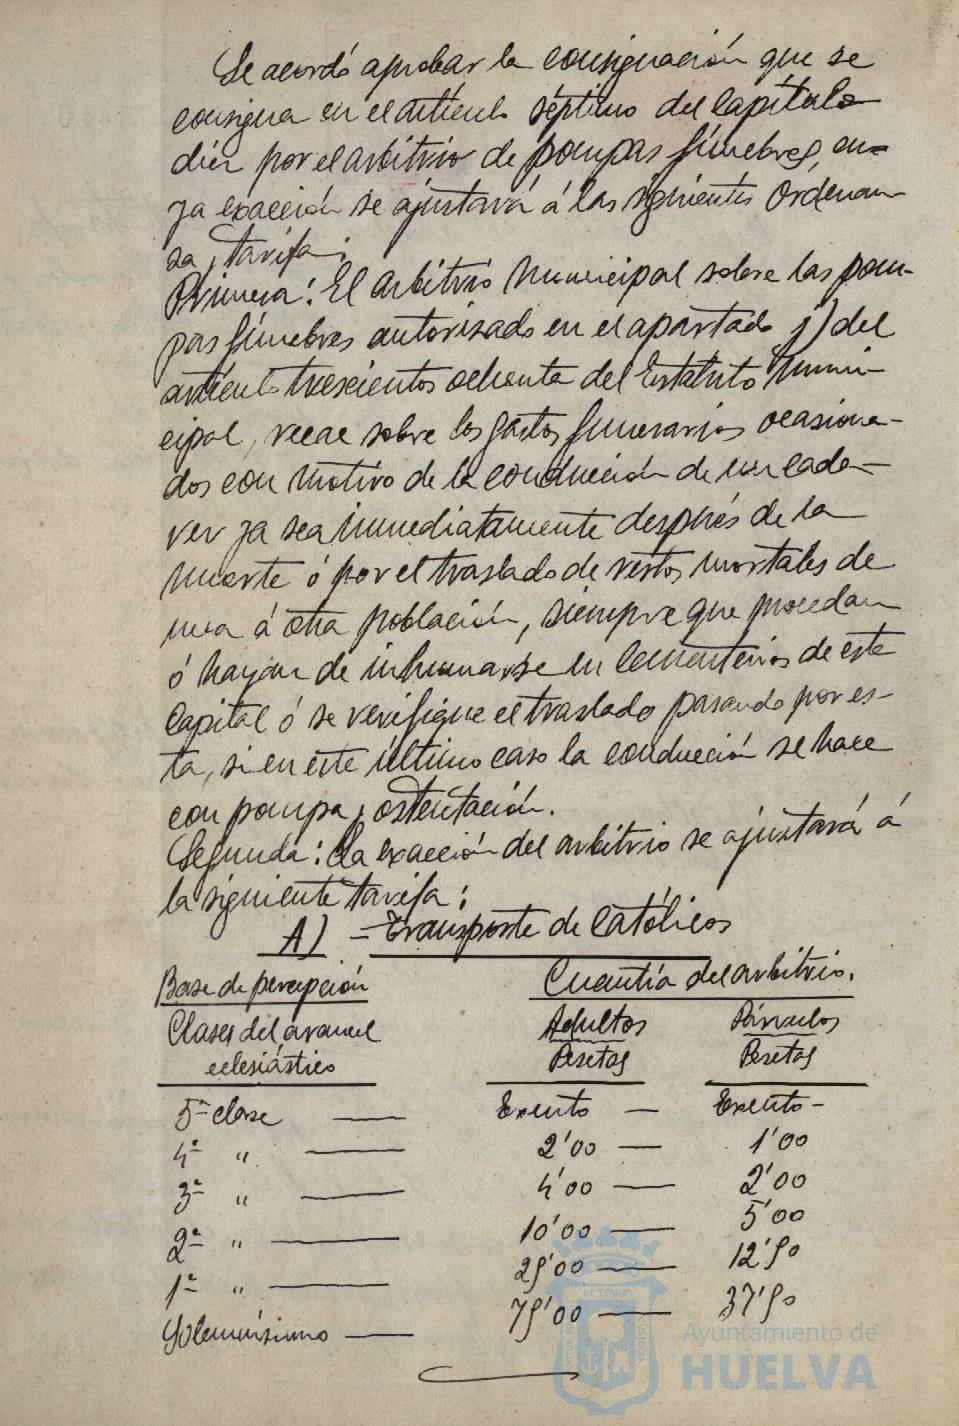 Se acordó aprobar la consignación que se
consigna en el artículo séptimo del Capítulo
diez por el arbitrio de pompas fúnebres, cu=
ya exacción se ajustará á las siguientes Ordenan
za y tarifa:
Primera: El arbitrio Municipal sobre las pom-
pas fúnebres autorizado en el apartado j) del
artículo trescientos ochenta del Estatuto Muni-
cipal, recae sobre los gastos funerarios ocasiona-
dos con motivo de la conducción de un cada-
ver ya sea inmediatamente después de la
muerte ó por el traslado de restos mortales de
una á otra población, siempre que procedan
ó hayan de inhumarse en Cementerios de esta
Capital ó se verifique el traslado pasando por es-
ta, si en este último caso la conducción se hace
con pompa y ostentación.
Segunda: La exacción del arbitrio se ajustará á
la siguiente tarifa:
A) - Transporte de Católicos
Base de percepción Cuantía del arbitrio.
Clases del arancel Adultos Párvulos
eclesiástico Pesetas Pesetas
5ª clase — Exento — Exento -
4ª " — 2'00 — 1'00
3ª " — 4'00 — 2'00
2ª " — 10'00 — 5'00
1ª " — 25'00 — 12'50
Solemnísimo — 75'00 — 37'50
Ayuntamiento de
HUELVA